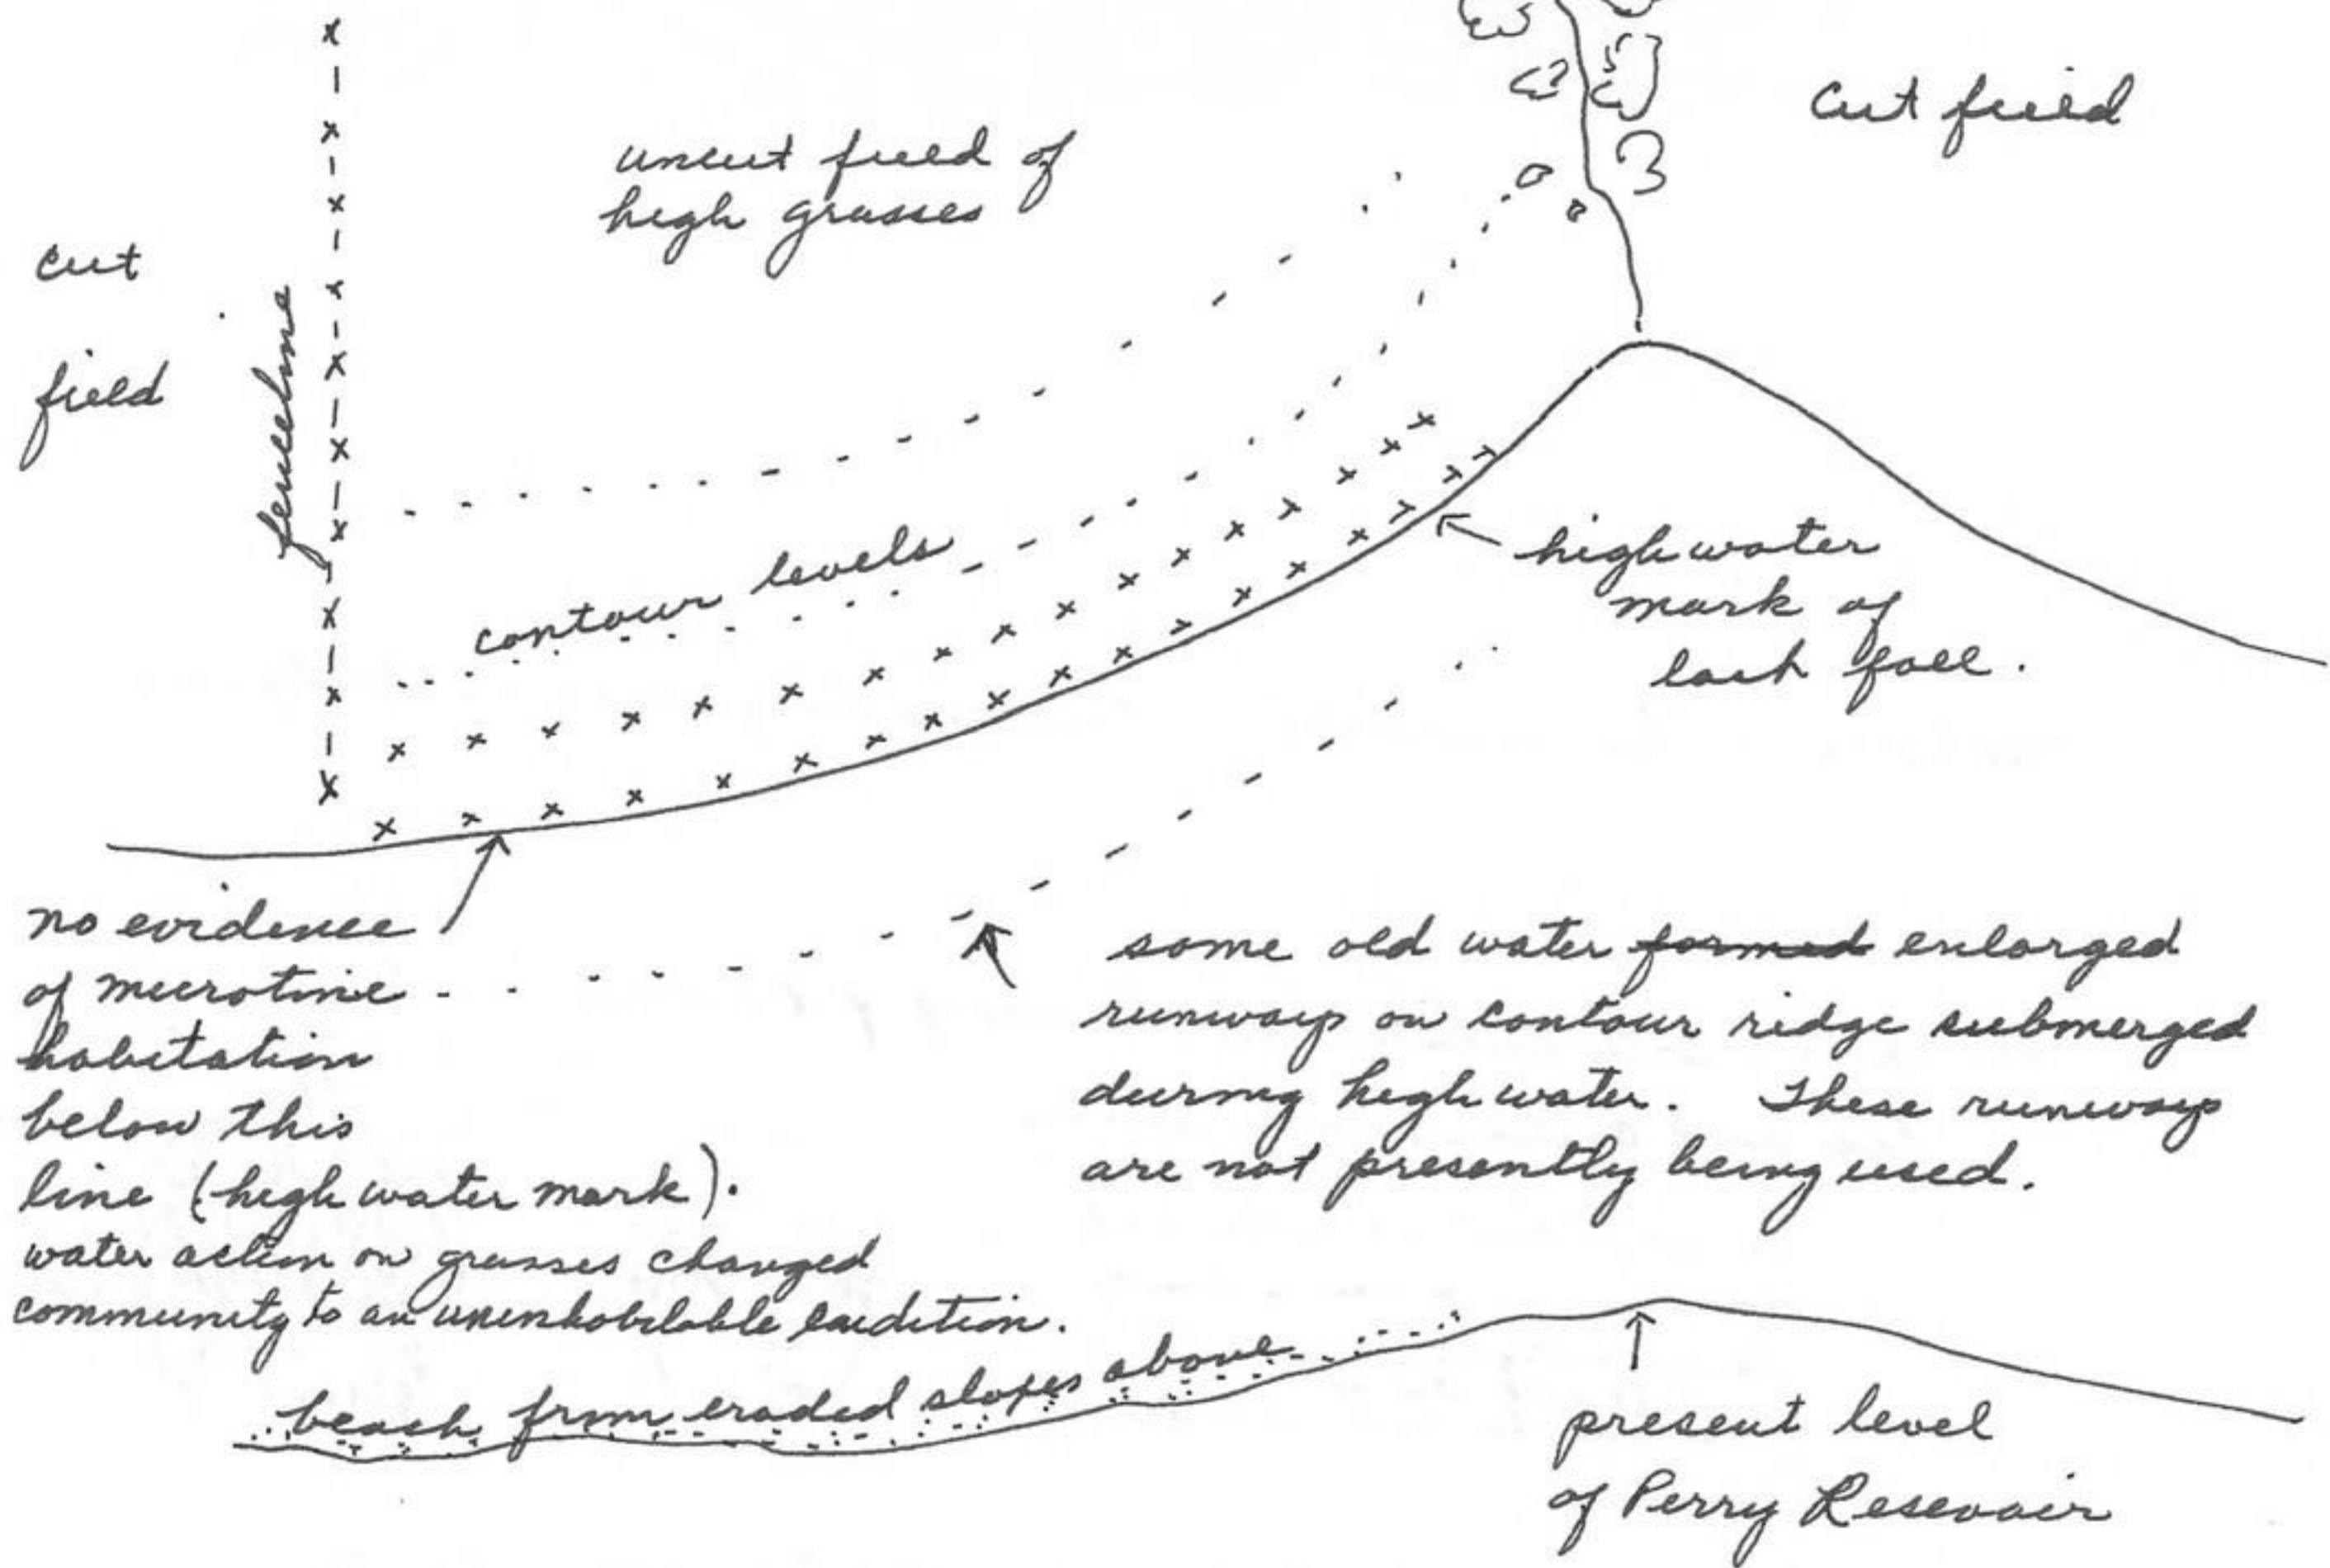 cut field
uncut field of
high grasses
cut
field
fenceline
contour levels
high water
mark of
last fall.
no evidence
of microtine
habitation
below this
line (high water mark).
water action on grasses changed
community to an uninhabitable condition.
some old water formed enlarged
runways on contour ridge submerged
during high water. These runways
are not presently being used.
beach from eroded slopes above
present level
of Perry Resevoir